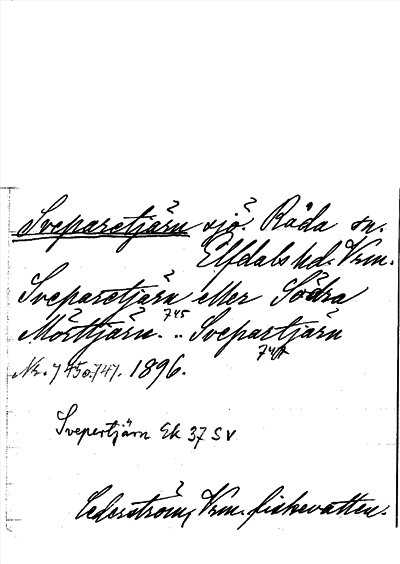 Sveparetjärn sjö. Råda sn.
Elfdals hd. Vrm.
Sveparetjärn eller Södra
745
Mörttjärn. .. Svepartjärn
747
Nr. 745 o. 747. 1896.
Svepertjärn Ek 37 SV
Cederström, Vrm. fiskevatten.